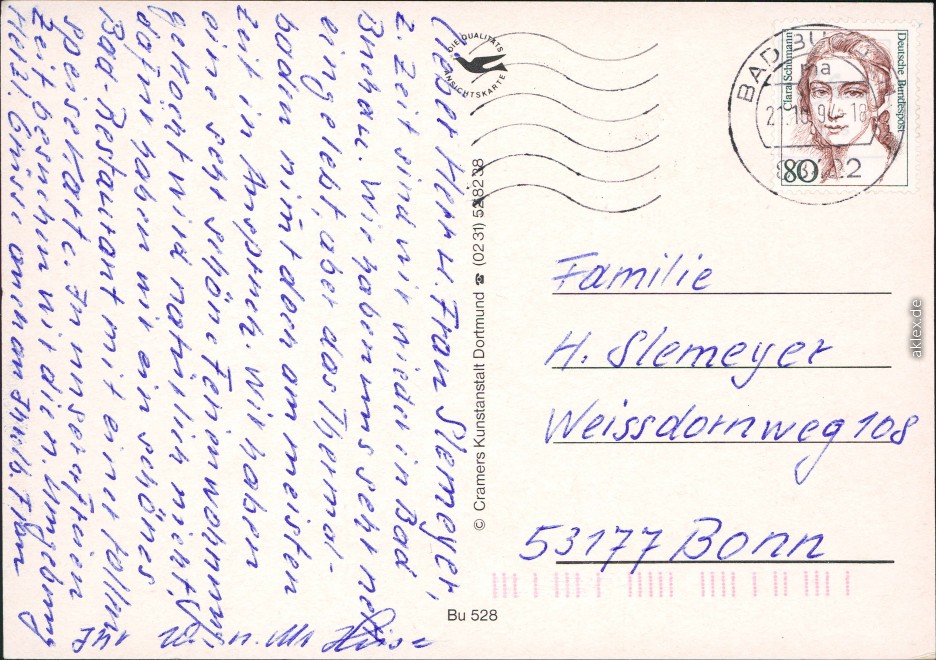 Lieber Herr u. Frau Slemeyer,
z. Zeit sind wir wieder in Bad
Buchau. Wir haben uns sehr
eingelebt, aber das Thermal-
baden nimt doch am meisten
Zeit in Anspruch. Wir haben
eine sehr schöne Ferienwohnung
gekocht wird natürlich nicht,
dafür haben wir ein schönes
Bad-Restaurant mit einer tollen
Speisekarte. In unserer freien
Zeit besehen wir die n. Umgebung
Herzl. Grüsse an
Ihr
DIE QUALITÄTS
ANSICHTSKARTE
© Cramers Kunstanstalt Dortmund ☎ (02 31) 52 82 38
Bu 528
BAD BU
ma
Clara Schumann
Deutsche Bundespost
80
Familie
H. Slemeyer
Weissdornweg 108
53177 Bonn
aklex.de